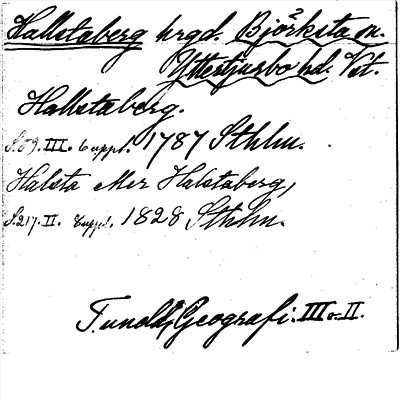 Hallstaberg hrgd. Björksta sn.
Yttertjurbo hd. Vst.
Hallstaberg.
S.59. III. 6 uppl. 1787 Sthlm.
Halsta eller Halstaberg,
S.217. II. 8 uppl. 1828 Sthlm.
Tuneld, Geografi. III o. II.